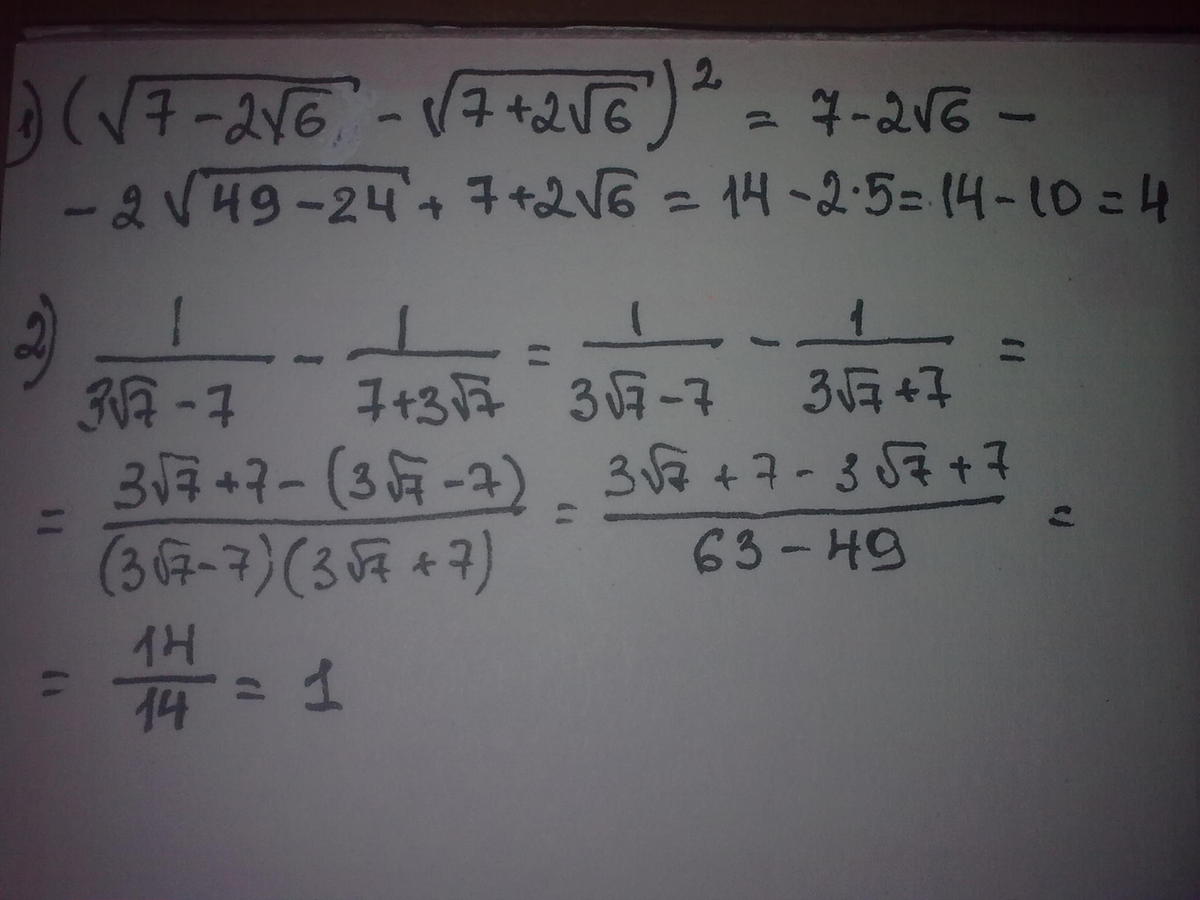 1) (√(7-2√6) - √(7+2√6))² = 7-2√6 -
- 2√(49-24) + 7+2√6 = 14-2·5=14-10=4
2) 1/(3√7-7) - 1/(7+3√7) = 1/(3√7-7) - 1/(3√7+7) =
= (3√7+7-(3√7-7))/((3√7-7)(3√7+7)) = (3√7+7-3√7+7)/(63-49) =
= 14/14 = 1